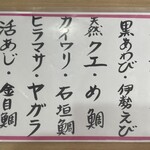 黒あわび・伊勢えび
天然クエ・め鯛
カイワリ・石垣鯛
ヒラマサ・ヤガラ
活あじ・金目鯛